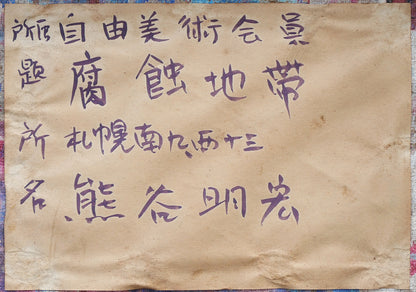 所属自由美術会員
題 腐蝕地帯
所 札幌南九、西十三
名 熊谷明宏